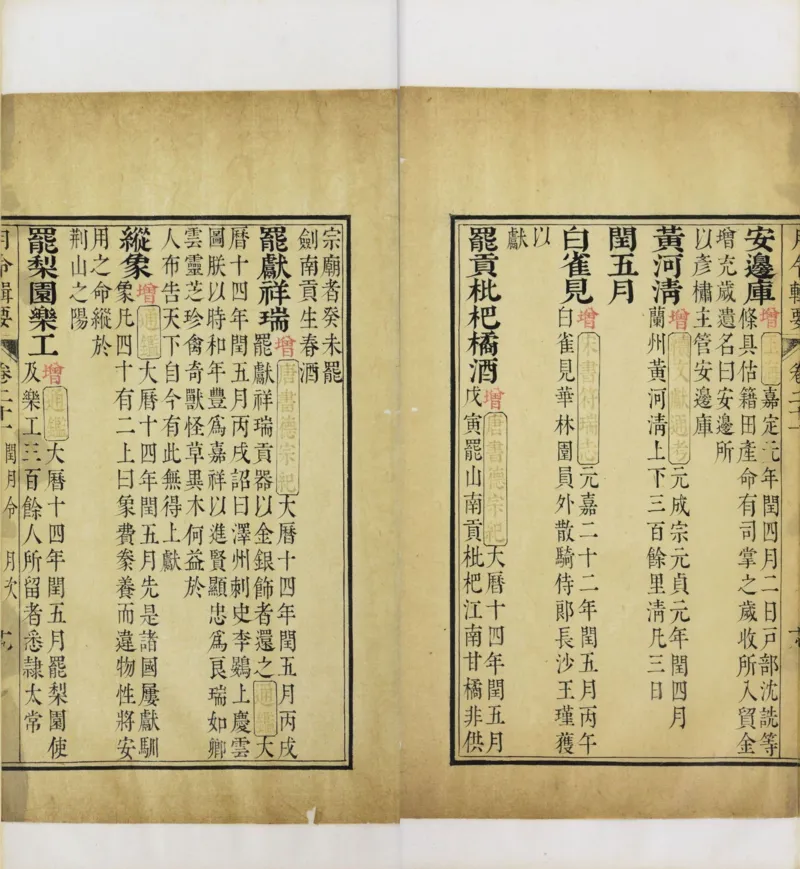 月令輯要 卷二十一
安邊庫 增 嘉定元年閏四月二日戸部沈詵等
條具估籍田產命有司掌之歲收所入貿金
增充歲遺名曰安邊所
以彥橚主管安邊庫
黃河清 增 續文獻通考 元成宗元貞元年閏四月
蘭州黃河清上下三百餘里清凡三日
閏五月
白雀見 增 宋書符瑞志 元嘉二十二年閏五月丙午
白雀見華林園員外散騎侍郎長沙王瑾獲
以
獻
罷貢枇杷橘酒 增 唐書德宗紀 大曆十四年閏五月
戊寅罷山南貢枇杷江南甘橘非供
宗廟者癸未罷
劍南貢生春酒
罷獻祥瑞 增 唐書德宗紀 大曆十四年閏五月丙戌
罷獻祥瑞貢器以金銀飾者還之 通鑑 大
曆十四年閏五月丙戌詔曰澤州刺史李鷃上慶雲
圖朕以時和年豐爲嘉祥以進賢顯忠爲良瑞如卿
雲靈芝珍禽奇獸怪草異木何益於
人布告天下自今有此無得上獻
縱象 增 通鑑 大曆十四年閏五月先是諸國屢獻馴
象凡四十有二上曰象費豢養而違物性將安
用之命縱於
荊山之陽
罷梨園樂工 增 通鑑 大曆十四年閏五月罷梨園使
及樂工三百餘人所留者悉隸太常
月令輯要 卷二十一 閏月令 月次